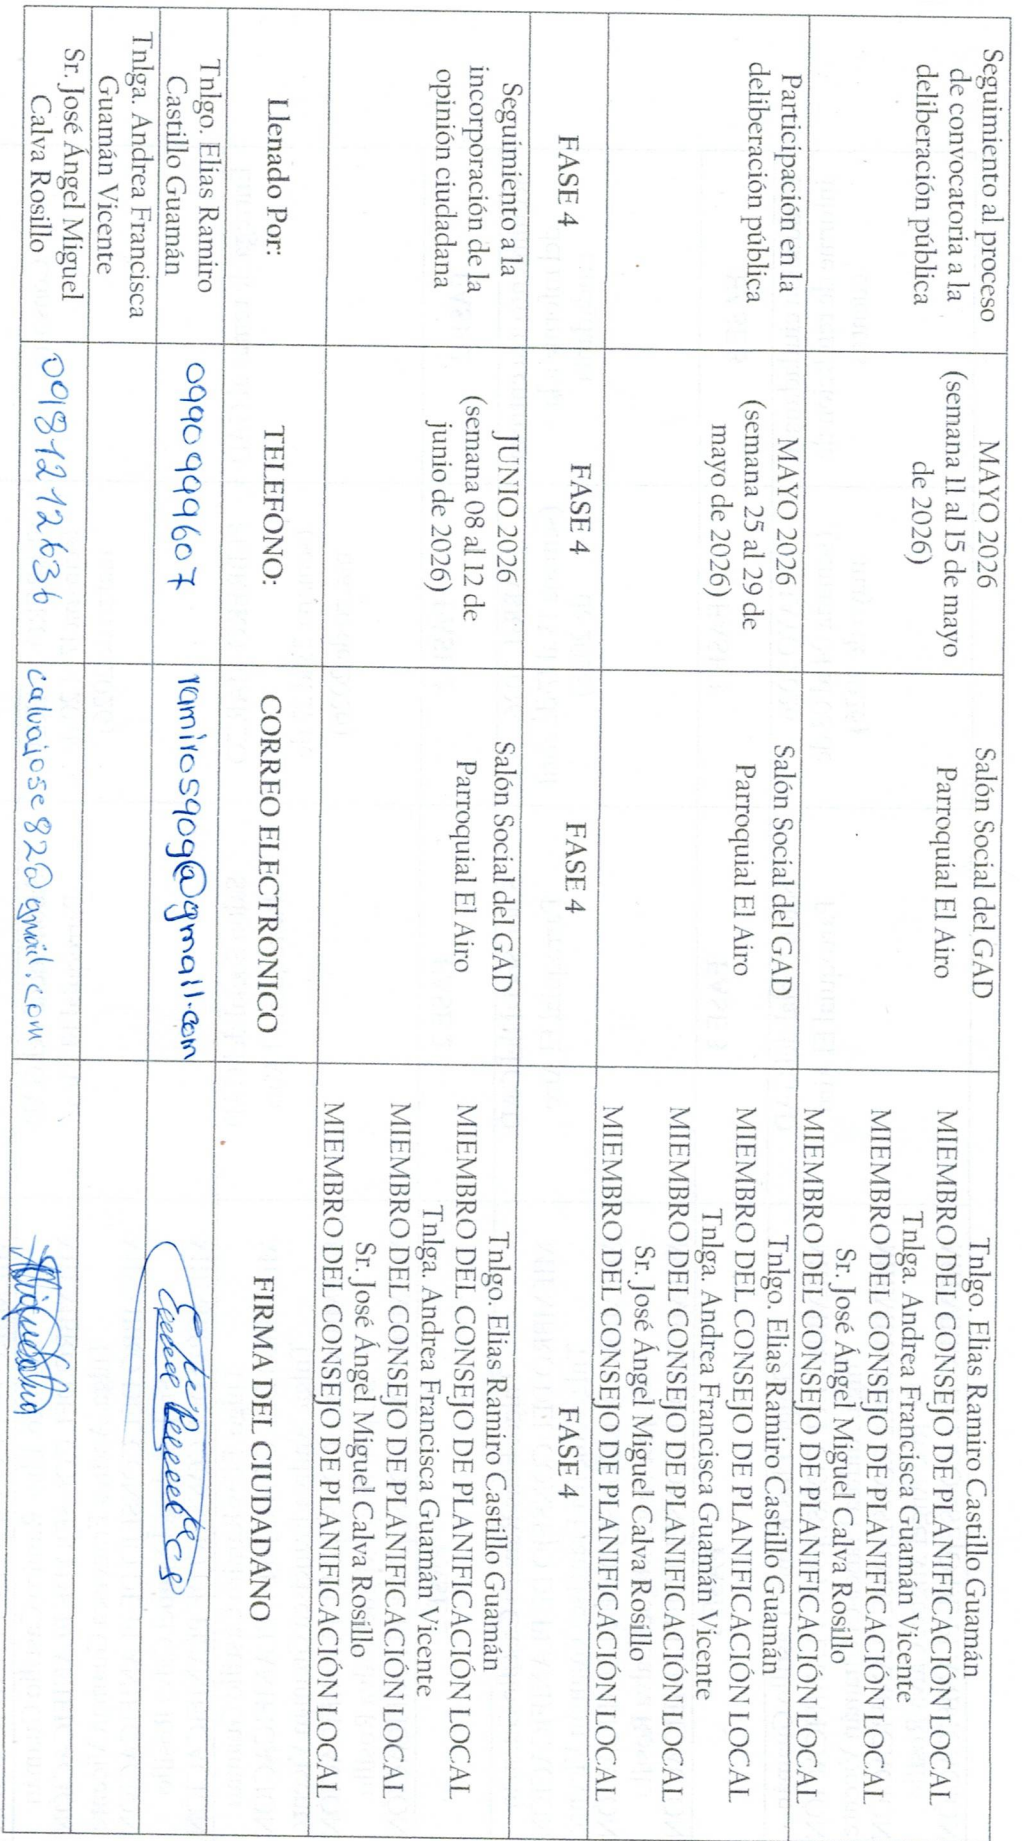 Seguimiento al proceso
de convocatoria a la
deliberación pública
MAYO 2026
(semana 11 al 15 de mayo
de 2026)
Salón Social del GAD
Parroquial El Airo
Tnlgo. Elias Ramiro Castillo Guamán
MIEMBRO DEL CONSEJO DE PLANIFICACIÓN LOCAL
Tnlga. Andrea Francisca Guamán Vicente
MIEMBRO DEL CONSEJO DE PLANIFICACIÓN LOCAL
Sr. José Ángel Miguel Calva Rosillo
MIEMBRO DEL CONSEJO DE PLANIFICACIÓN LOCAL
Participación en la
deliberación pública
MAYO 2026
(semana 25 al 29 de
mayo de 2026)
Salón Social del GAD
Parroquial El Airo
Tnlgo. Elias Ramiro Castillo Guamán
MIEMBRO DEL CONSEJO DE PLANIFICACIÓN LOCAL
Tnlga. Andrea Francisca Guamán Vicente
MIEMBRO DEL CONSEJO DE PLANIFICACIÓN LOCAL
Sr. José Ángel Miguel Calva Rosillo
MIEMBRO DEL CONSEJO DE PLANIFICACIÓN LOCAL
FASE 4
FASE 4
FASE 4
FASE 4
Seguimiento a la
incorporación de la
opinión ciudadana
JUNIO 2026
(semana 08 al 12 de
junio de 2026)
Salón Social del GAD
Parroquial El Airo
Tnlgo. Elias Ramiro Castillo Guamán
MIEMBRO DEL CONSEJO DE PLANIFICACIÓN LOCAL
Tnlga. Andrea Francisca Guamán Vicente
MIEMBRO DEL CONSEJO DE PLANIFICACIÓN LOCAL
Sr. José Ángel Miguel Calva Rosillo
MIEMBRO DEL CONSEJO DE PLANIFICACIÓN LOCAL
Llenado Por:
TELEFONO:
CORREO ELECTRONICO
FIRMA DEL CIUDADANO
Tnlgo. Elias Ramiro
Castillo Guamán
0990999607
ramiros90g@gmail.com
Tnlga. Andrea Francisca
Guamán Vicente
Sr. José Ángel Miguel
Calva Rosillo
0981212636
calvajose82@gmail.com